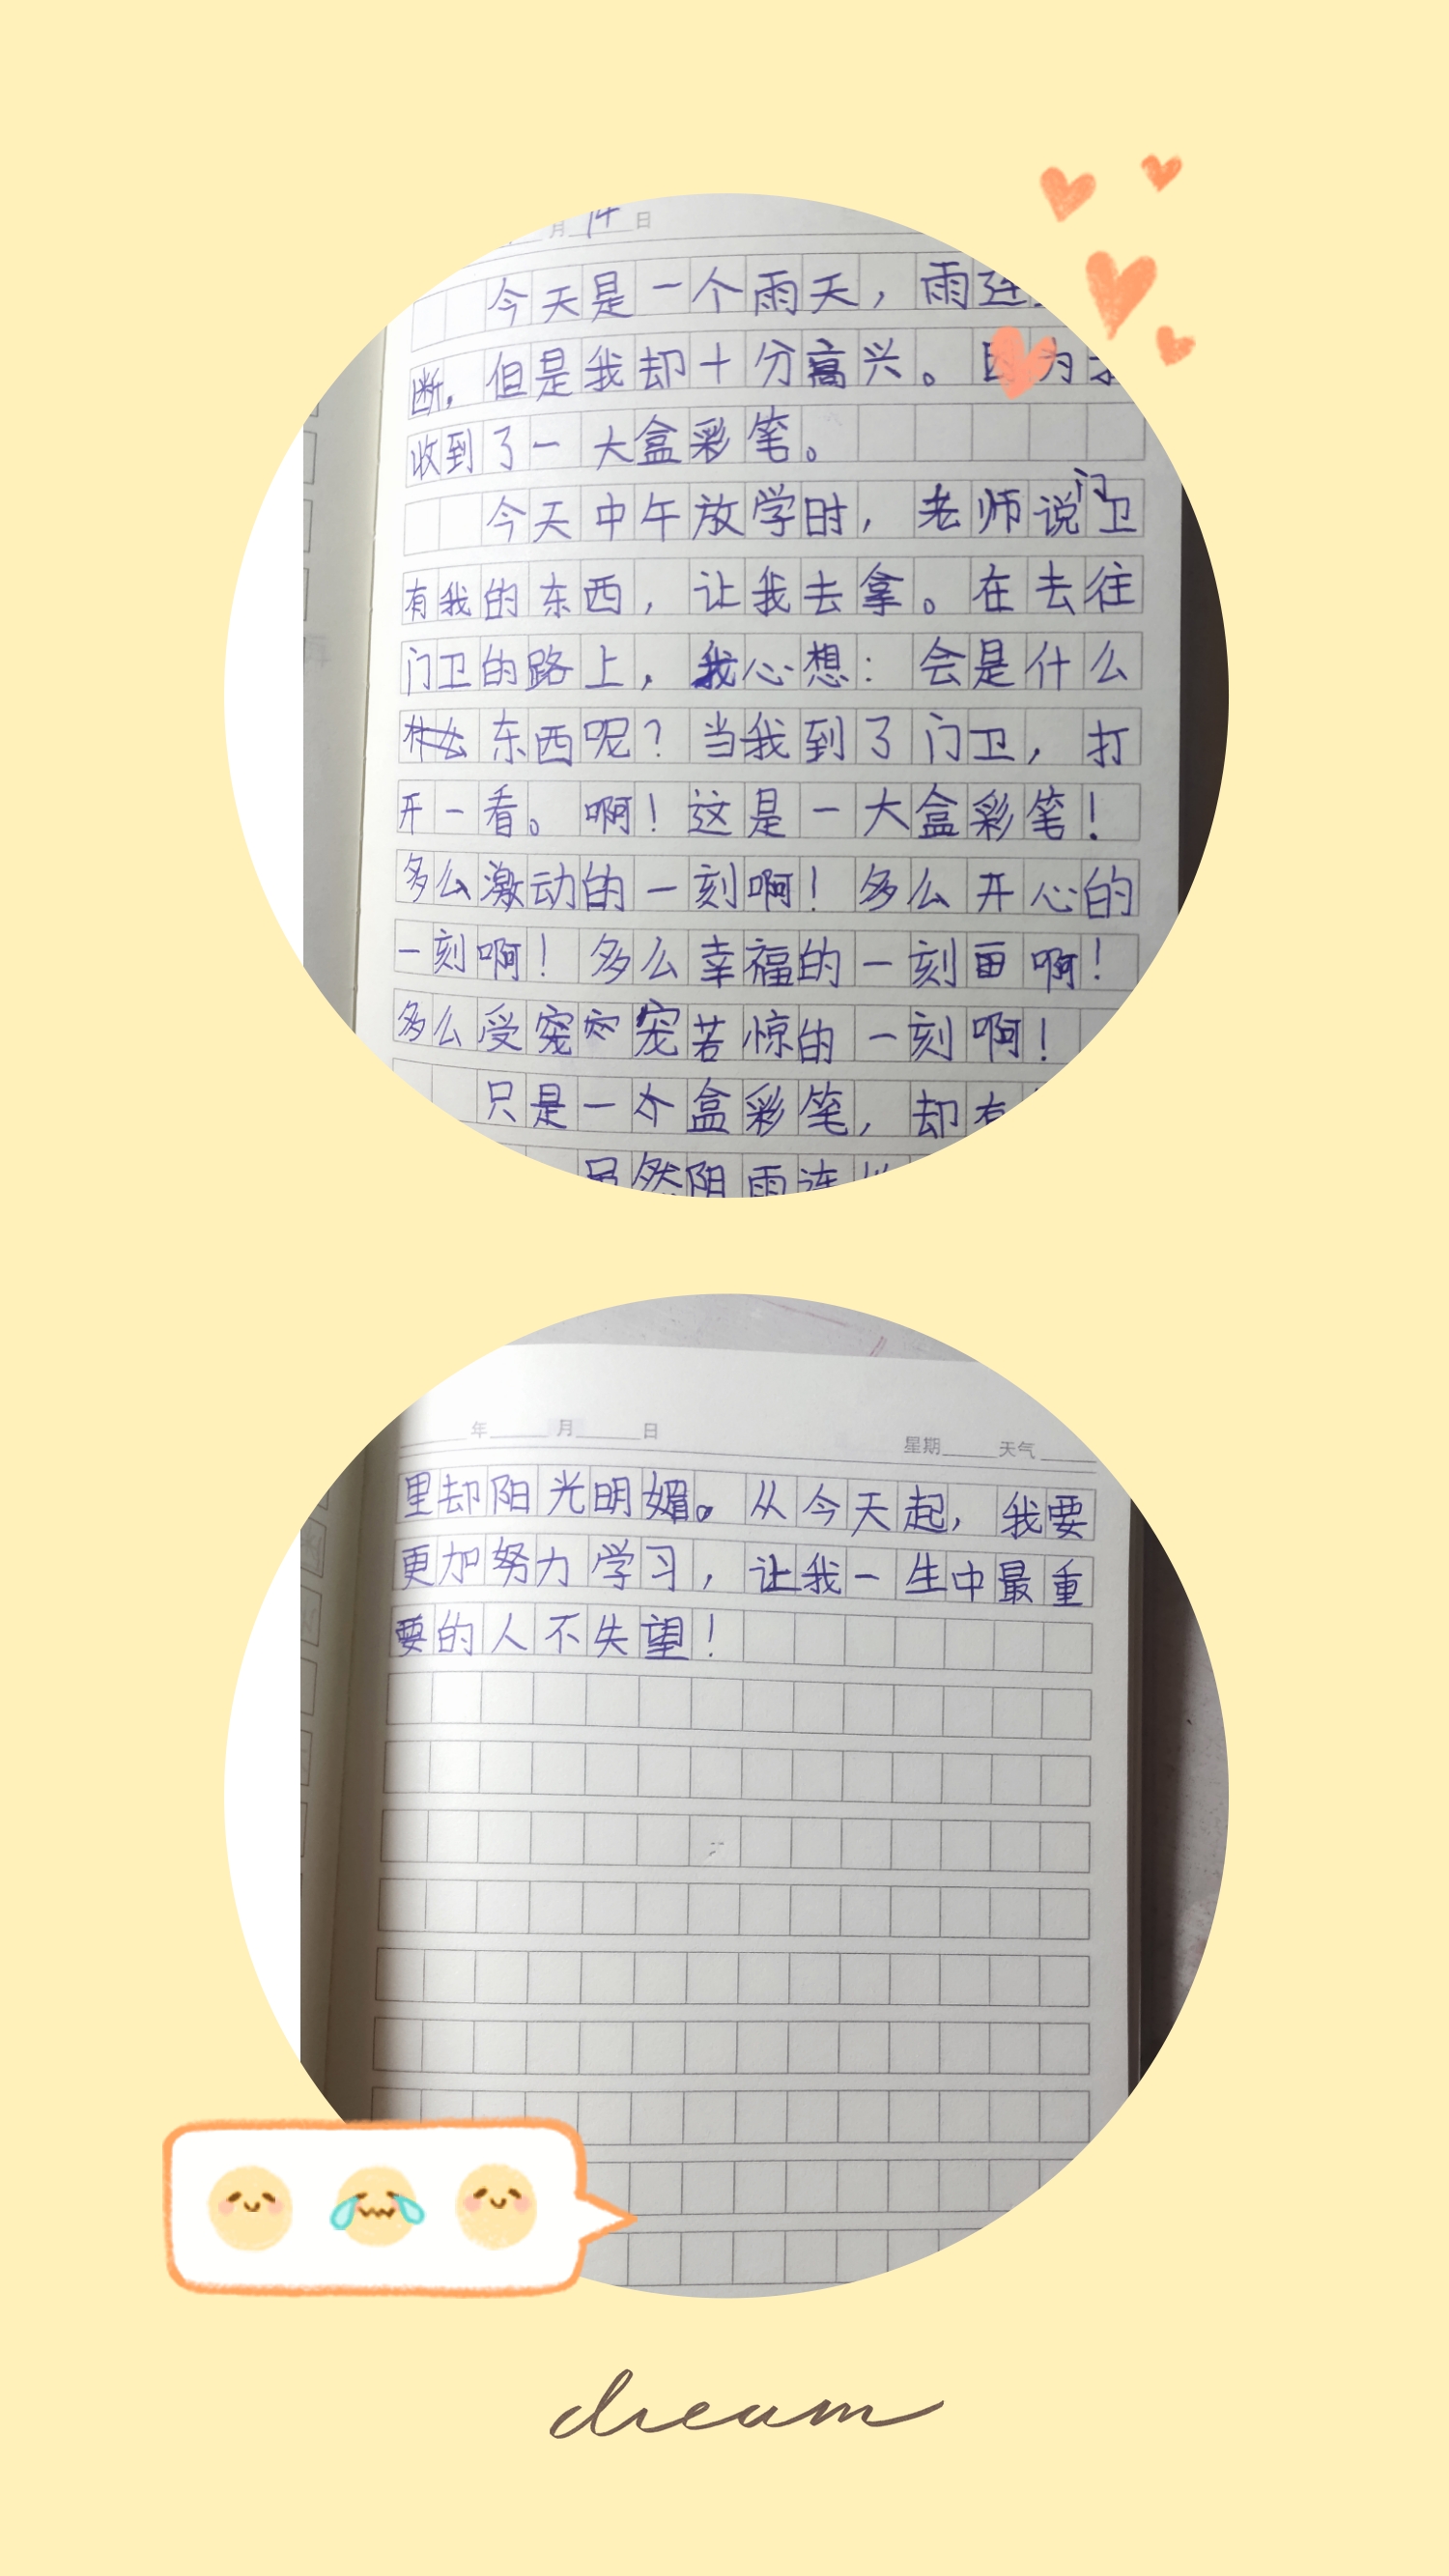 月14日
今天是一个雨天，雨连
断，但是我却十分高兴。因为
收到了一大盒彩笔。
今天中午放学时，老师说门卫
有我的东西，让我去拿。在去往
门卫的路上，我心想：会是什么
东西呢？当我到了门卫，打
开一看。啊！这是一大盒彩笔！
多么激动的一刻啊！多么开心的
一刻啊！多么幸福的一刻啊！
多么受宠若惊的一刻啊！
只是一个盒彩笔，却有
虽然阴雨连
年 月 日 星期 天气
里却阳光明媚。从今天起，我要
更加努力学习，让我一生中最重
要的人不失望！
dream